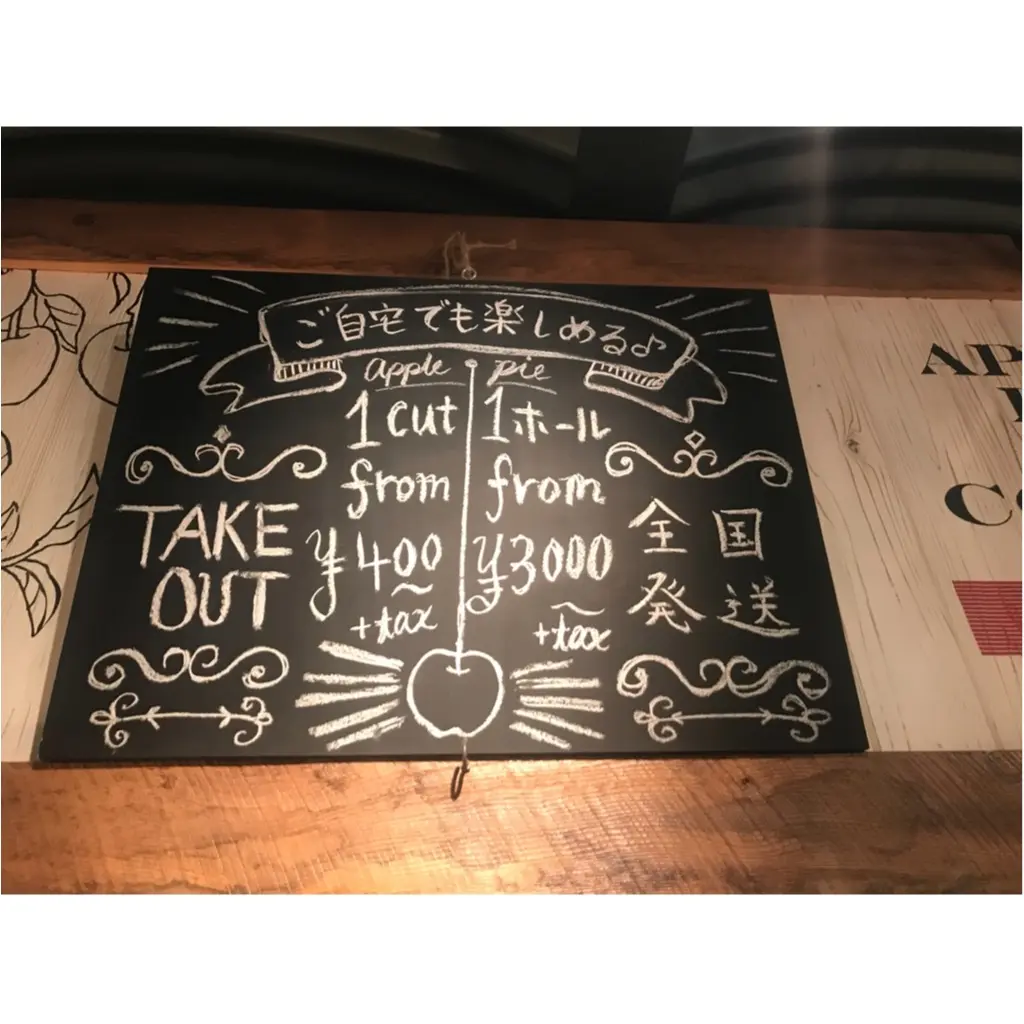 ご自宅でも楽しめる♪
apple pie
1 cut
from
¥400
+tax
1ホール
from
¥3000
+tax
TAKE
OUT
全国
発送
AP
C